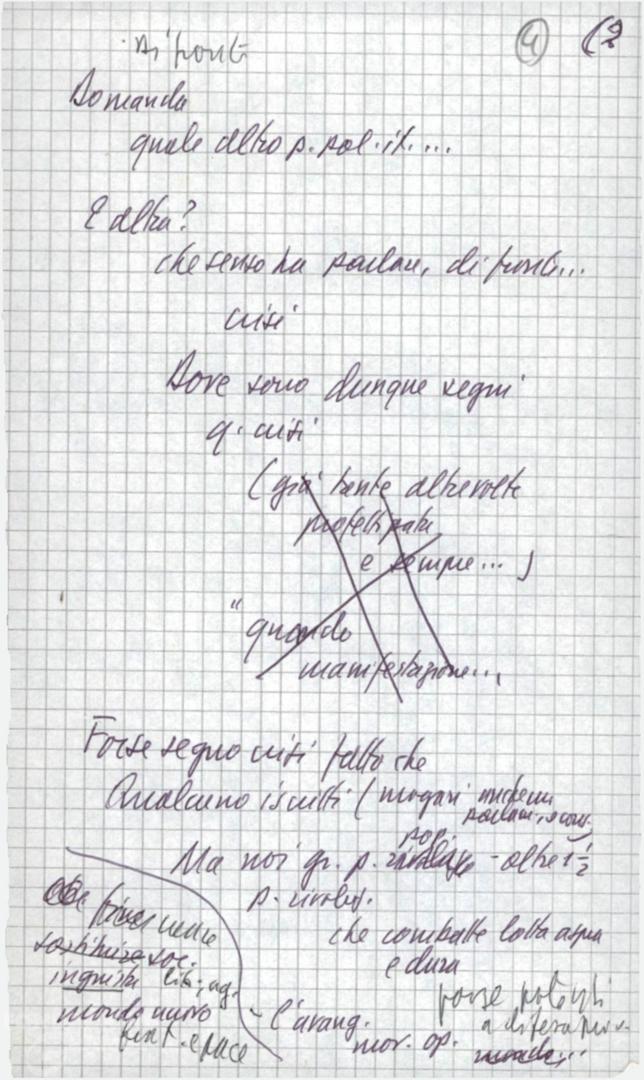 Di fronte
4 (2
Domanda
quale altro p. pol. it....
E altra?
che senso ha parlare, di fronte...
crisi
Dove sono dunque segni
q. crisi
(già tante altre volte
profetizzata
e sempre...)
"quando
manifestazione...
Forse segno crisi fatto che
Qualcuno iscritti (magari
Ma noi gr. p. pop. - oltre 1½
p. rivoluz.
che combatte lotta aspra
e dura
sostituire soc.
ingiusta
mondo nuovo
frat. e pace
- l'avang.
mov. op.
forse potenti